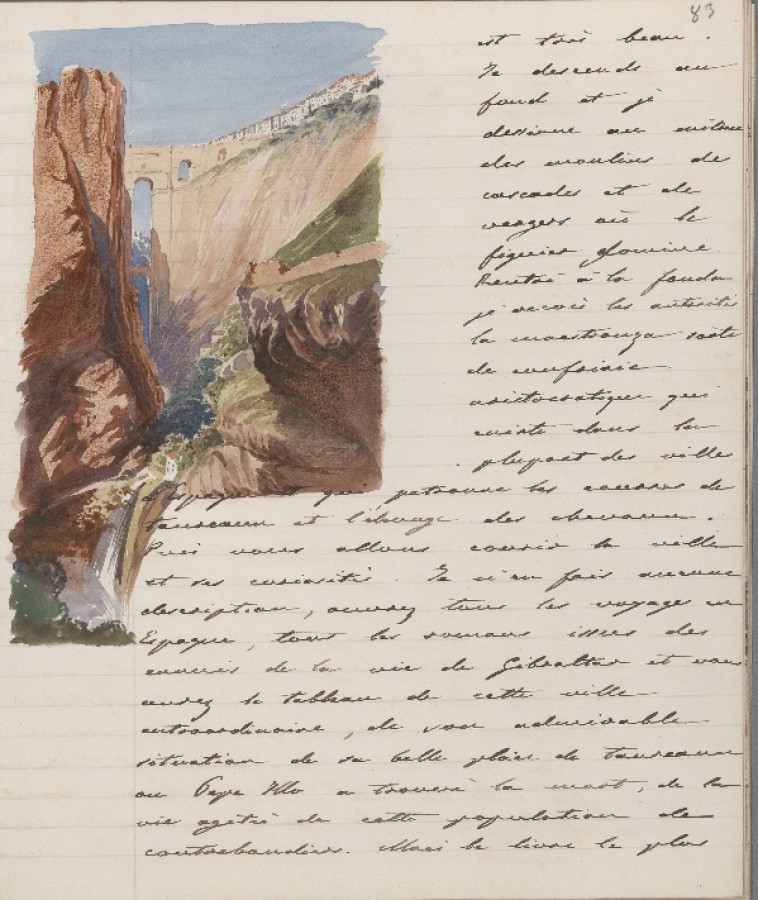 83
est très beau.
Je descends au
fond et je
dessine au milieu
des moulins des
cascades et de
vergers où le
figuier domine
Rentré à la fonda
je reçois les autorités
la maestranza sorte
de confrérie
aristocratique qui
existe dans la
plupart des villes
d'Espagne et qui patronne les courses de
taureaux et l'élevage des chevaux.
Puis nous allons courir la ville
et ses curiosités. Je n'en fais aucune
description, ouvrez tous les voyages en
Espagne, tous les romans issus des
ennuis de la vie de Gibraltar et vous
aurez le tableau de cette ville
extraordinaire, de son admirable
situation de sa belle place de taureaux
où Pepe Illo a trouvé la mort, de la
vie agitée de cette population de
contrebandiers. Mais le livre le plus